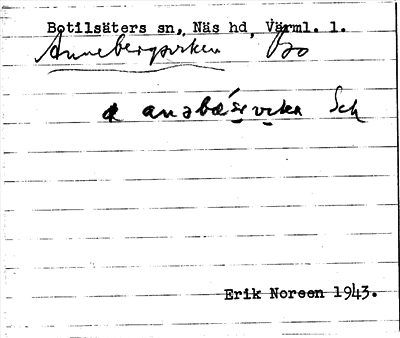 Botilsäters sn, Näs hd, Värml. l.
Annebergsviken Bo
a anəbæ´rsvikən Sch
Erik Noreen 1943.